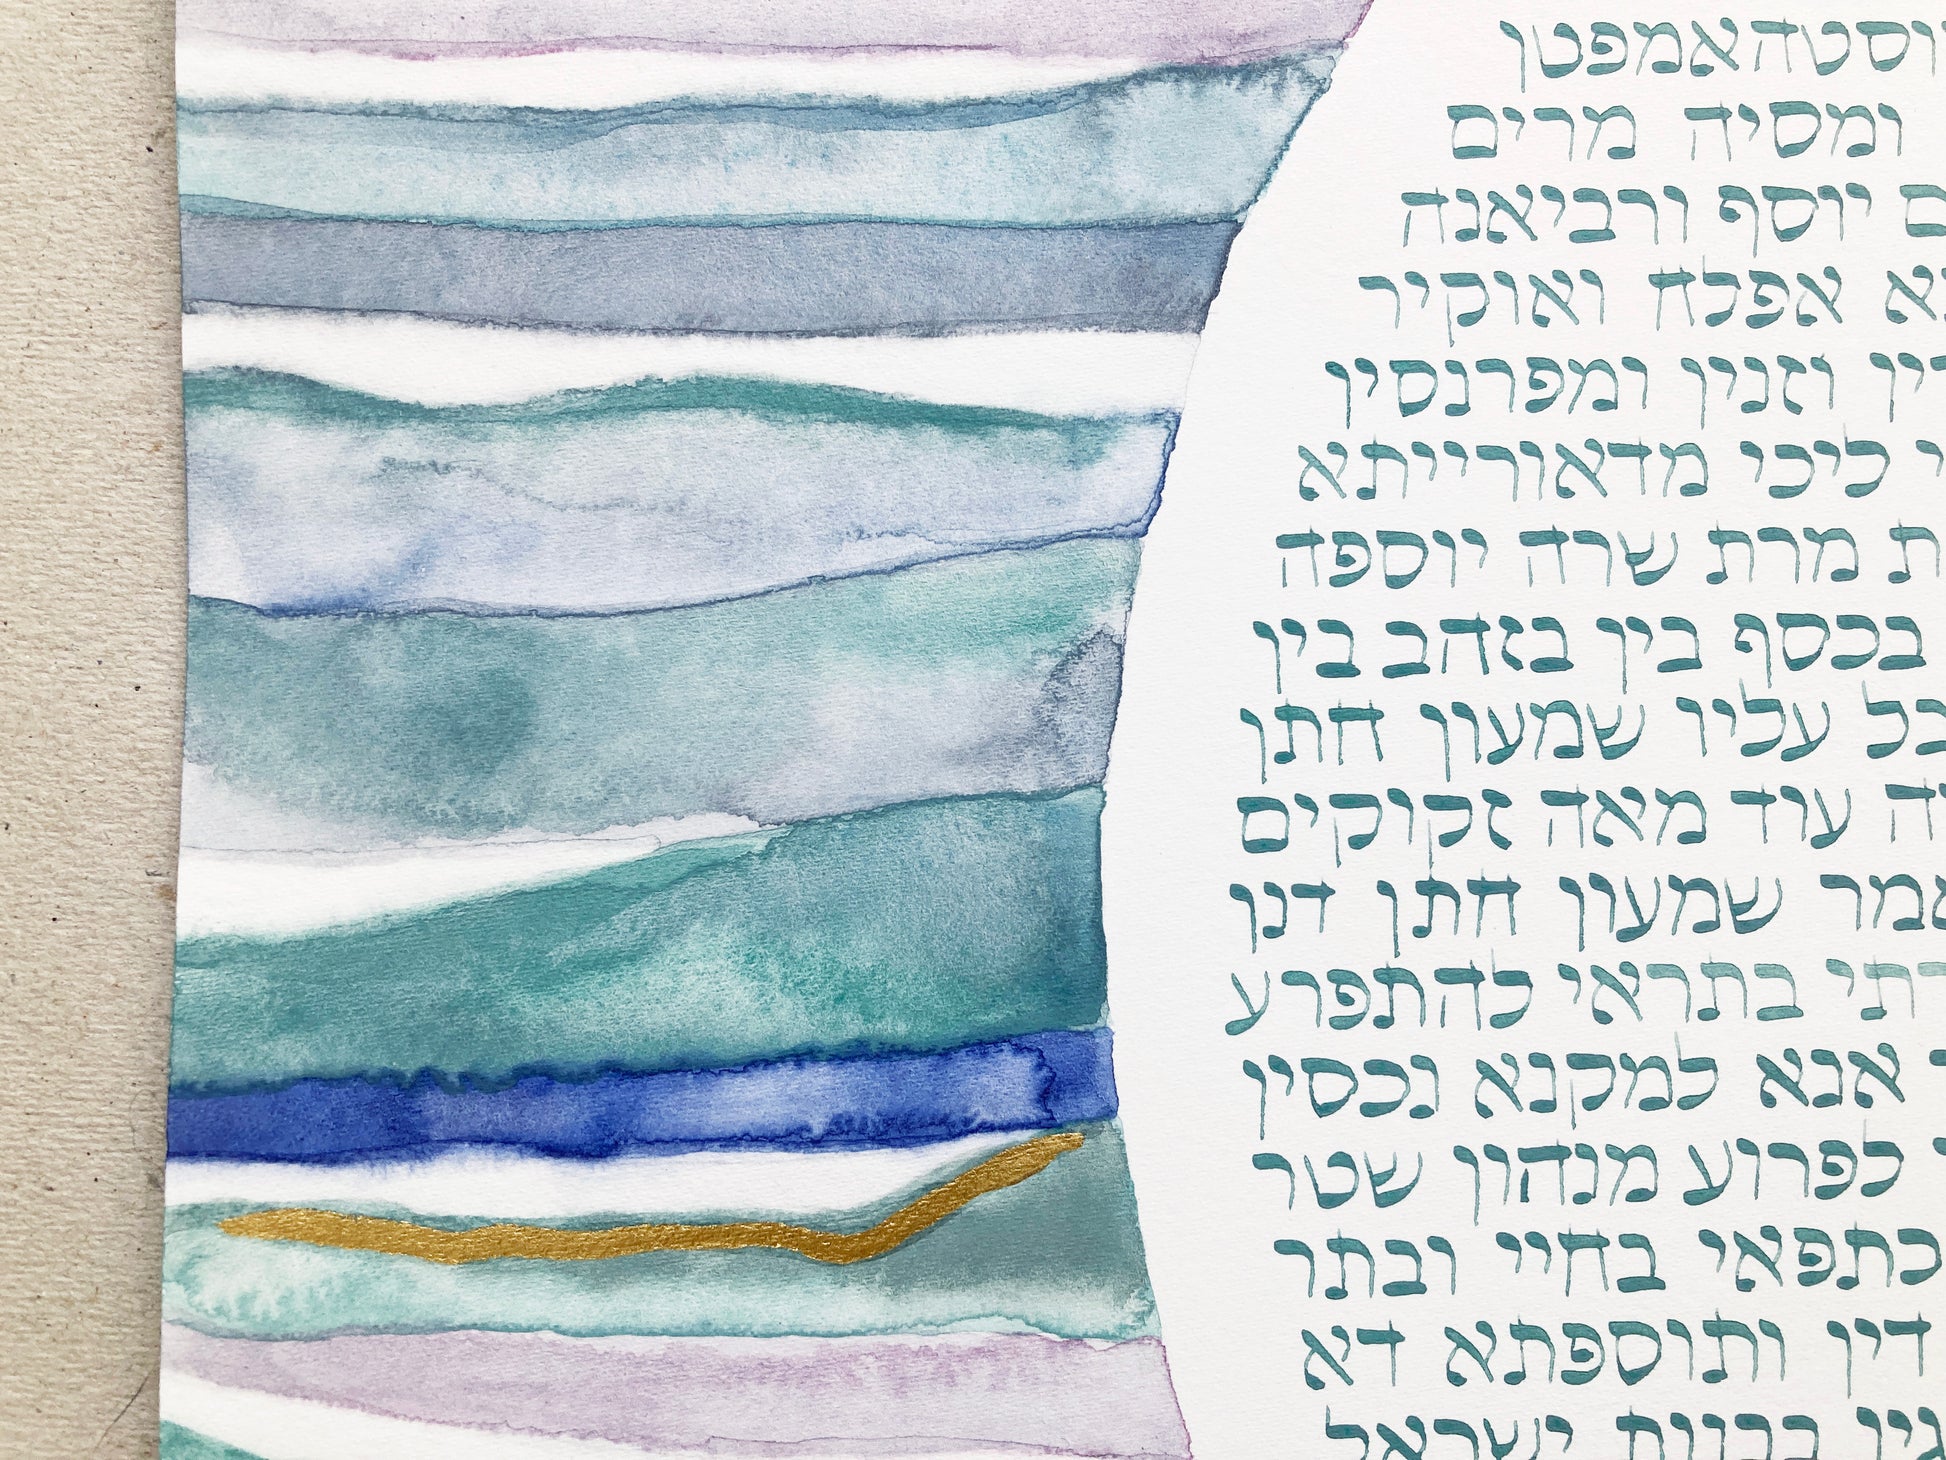 וסטהאמפטן
ומסיה מרים
יוסף ורביאנה
אפלח ואוקיר
וזנין ומפרנסין
ליכי מדאורייתא
מרת שרה יוספה
בכסף בין בזהב בין
עליו שמעון חתן
עוד מאה זקוקים
שמעון חתן דנן
בתראי להתפרע
אנא למקנא נכסין
לפרוע מנהון שטר
כתפאי בחיי ובתר
דין ותוספתא דא
בבנות ישראל